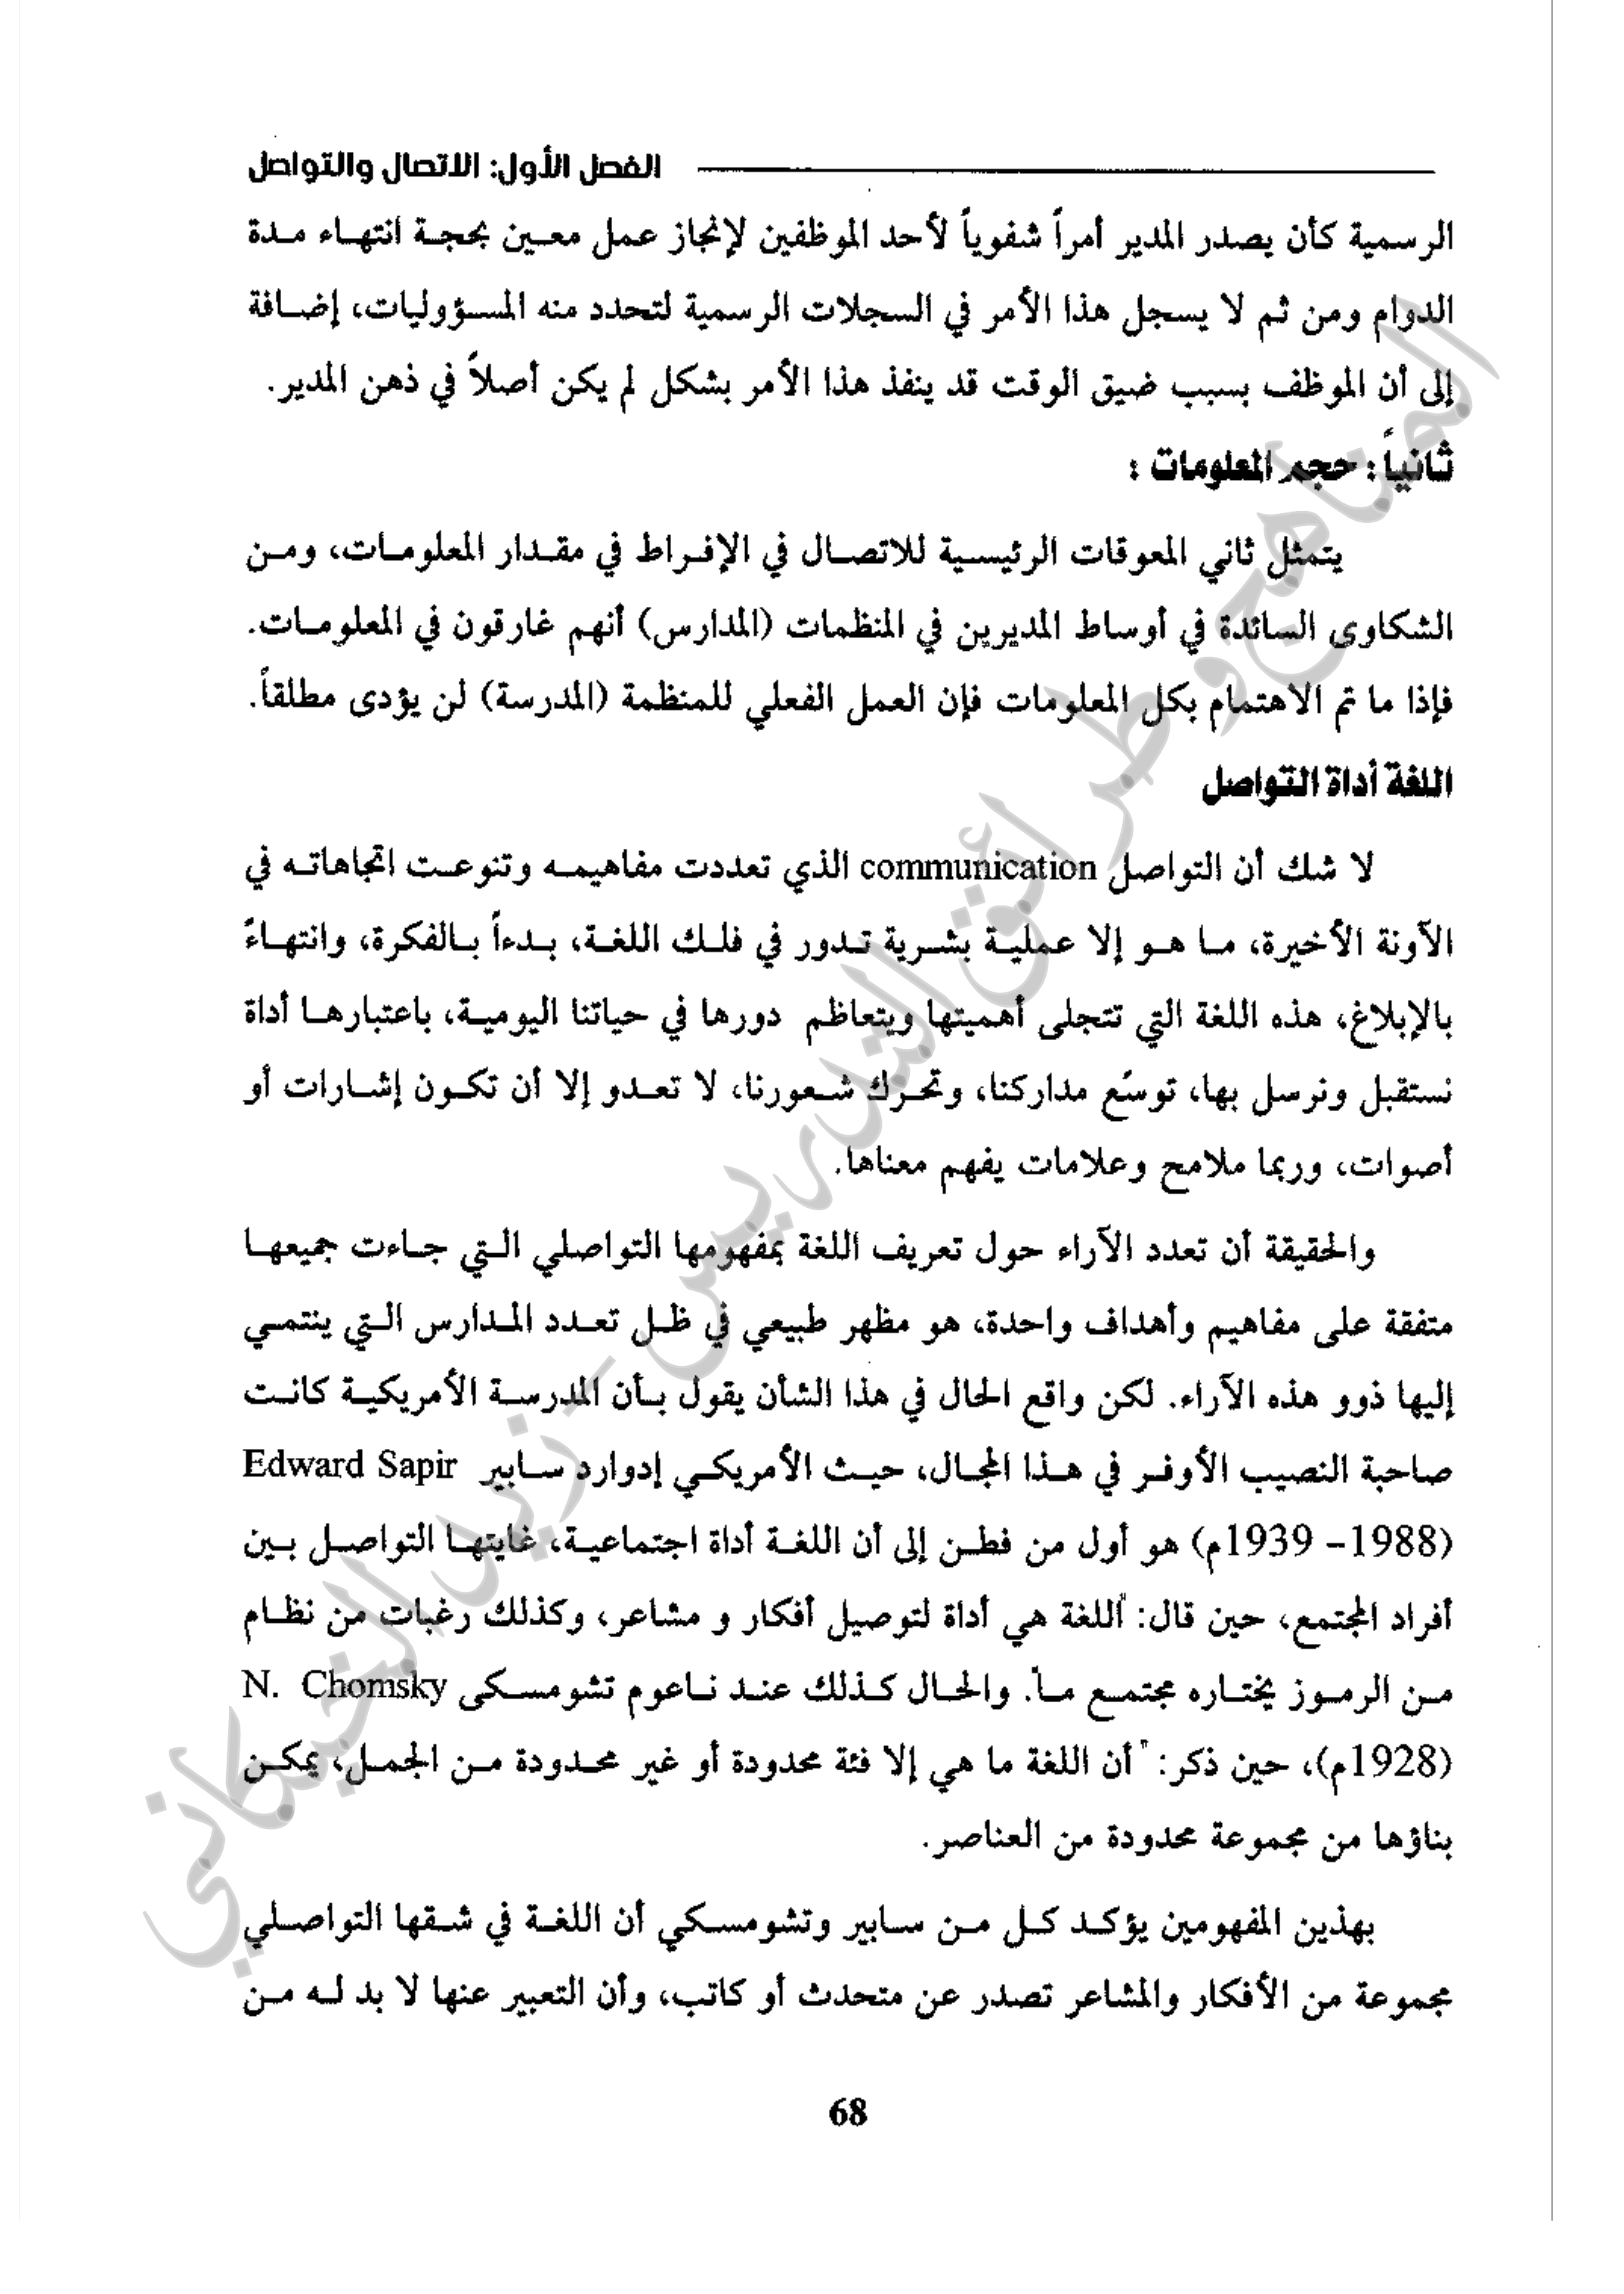 الفصل الأول: الاتصال والتواصل
الرسمية كأن يصدر المدير أمراً شفوياً لأحد الموظفين لإنجاز عمل معين بحجة انتهاء مدة
الدوام ومن ثم لا يسجل هذا الأمر في السجلات الرسمية لتحدد منه المسؤوليات، إضافة
إلى أن الموظف بسبب ضيق الوقت قد ينفذ هذا الأمر بشكل لم يكن أصلاً في ذهن المدير.
ثانياً: حجم المعلومات :
يتمثل ثاني المعوقات الرئيسية للاتصال في الإفراط في مقدار المعلومات، ومن
الشكاوى السائدة في أوساط المديرين في المنظمات (المدارس) أنهم غارقون في المعلومات.
فإذا ما تم الاهتمام بكل المعلومات فإن العمل الفعلي للمنظمة (المدرسة) لن يؤدى مطلقاً.
اللغة أداة التواصل
لا شك أن التواصل communication الذي تعددت مفاهيمه وتنوعت اتجاهاته في
الآونة الأخيرة، ما هو إلا عملية بشرية تدور في فلك اللغة، بدءاً بالفكرة، وانتهاءً
بالإبلاغ، هذه اللغة التي تتجلى أهميتها ويتعاظم دورها في حياتنا اليومية، باعتبارها أداة
نستقبل ونرسل بها، توسّع مداركنا، وتحرك شعورنا، لا تعدو إلا أن تكون إشارات أو
أصوات، وربما ملامح وعلامات يفهم معناها.
والحقيقة أن تعدد الآراء حول تعريف اللغة بمفهومها التواصلي التي جاءت جميعها
متفقة على مفاهيم وأهداف واحدة، هو مظهر طبيعي في ظل تعدد المدارس التي ينتمي
إليها ذوو هذه الآراء. لكن واقع الحال في هذا الشأن يقول بأن المدرسة الأمريكية كانت
صاحبة النصيب الأوفر في هذا المجال، حيث الأمريكي إدوارد سابير Edward Sapir
(1988- 1939م) هو أول من فطن إلى أن اللغة أداة اجتماعية، غايتها التواصل بين
أفراد المجتمع، حين قال: "اللغة هي أداة لتوصيل أفكار و مشاعر، وكذلك رغبات من نظام
من الرموز يختاره مجتمع ما". والحال كذلك عند ناعوم تشومسكى N. Chomsky
(1928م)، حين ذكر: "أن اللغة ما هي إلا فئة محدودة أو غير محدودة من الجمل، يمكن
بناؤها من مجموعة محدودة من العناصر.
بهذين المفهومين يؤكد كل من سابير وتشومسكي أن اللغة في شقها التواصلي
مجموعة من الأفكار والمشاعر تصدر عن متحدث أو كاتب، وأن التعبير عنها لا بد له من
68
المناهج وطرائق التدريس - زيد الخيكاني